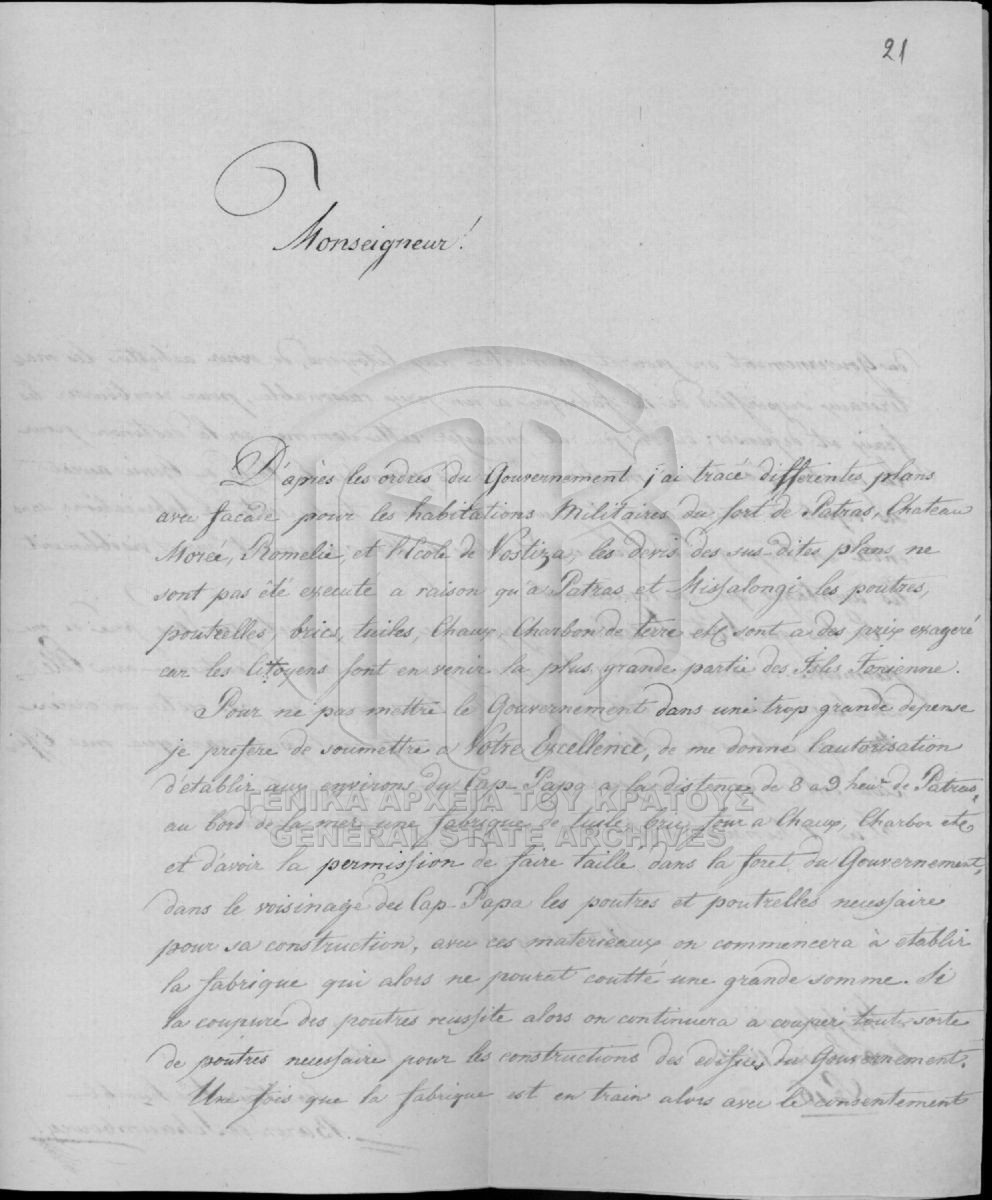 21
Monseigneur!
D'après les ordres du Gouvernement j'ai tracé differentes plans
avec façade pour les habitations Militaires du fort de Patras, Chateau
Morée, Romelie, et l'Ecole de Vostiza, les devis des sus-dites plans, ne
sont pas êté executé a raison qu'a Patras et Missalongi les poutres,
poutrelles, brics, tuiles, Chaux, Charbon de terre etc sont a des prix exageré
car les Citoyens font en venir la plus grande partie des Isles Ionienne.
Pour ne pas mettre le Gouvernement dans une trop grande depense
je prefere de soumettre a Votre Excellence, de me donné l'autorisation
d'établir aux environs du Cap-Papa a la distence de 8 a 9 heurs de Patras,
au bord de la mer une fabrique de tuile, bric, four a Chaux, Charbon etc
et d'avoir la permission de faire taille dans la foret du Gouvernement,
dans le voisinage du Cap-Papa les poutres et poutrelles necessaire
pour sa construction, avec ces materieaux on commencera à etablir
la fabrique qui alors ne pourat coutté une grande somme. Si
la coupure des poutres reussite alors on continuera a couper tout sorte
de poutres necessaire pour les constructions des edifices du Gouvernement.
Une fois que la fabrique est en train alors avec le consentement
ΓΕΝΙΚΑ ΑΡΧΕΙΑ ΤΟΥ ΚΡΑΤΟΥΣ
GENERAL STATE ARCHIVES